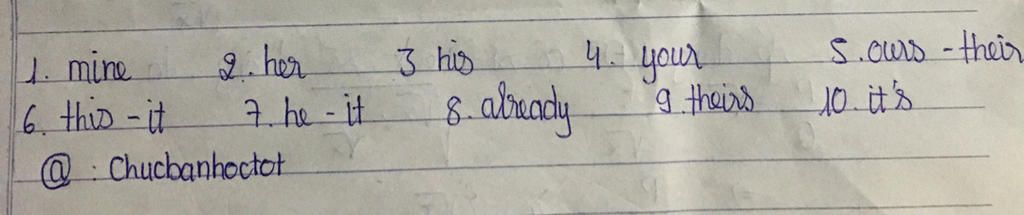 1. mine 2. her 3 his 4. your 5. ours - their
6. this - it 7. he - it 8. already 9. theirs 10. it's
@ : Chucbanhoctot